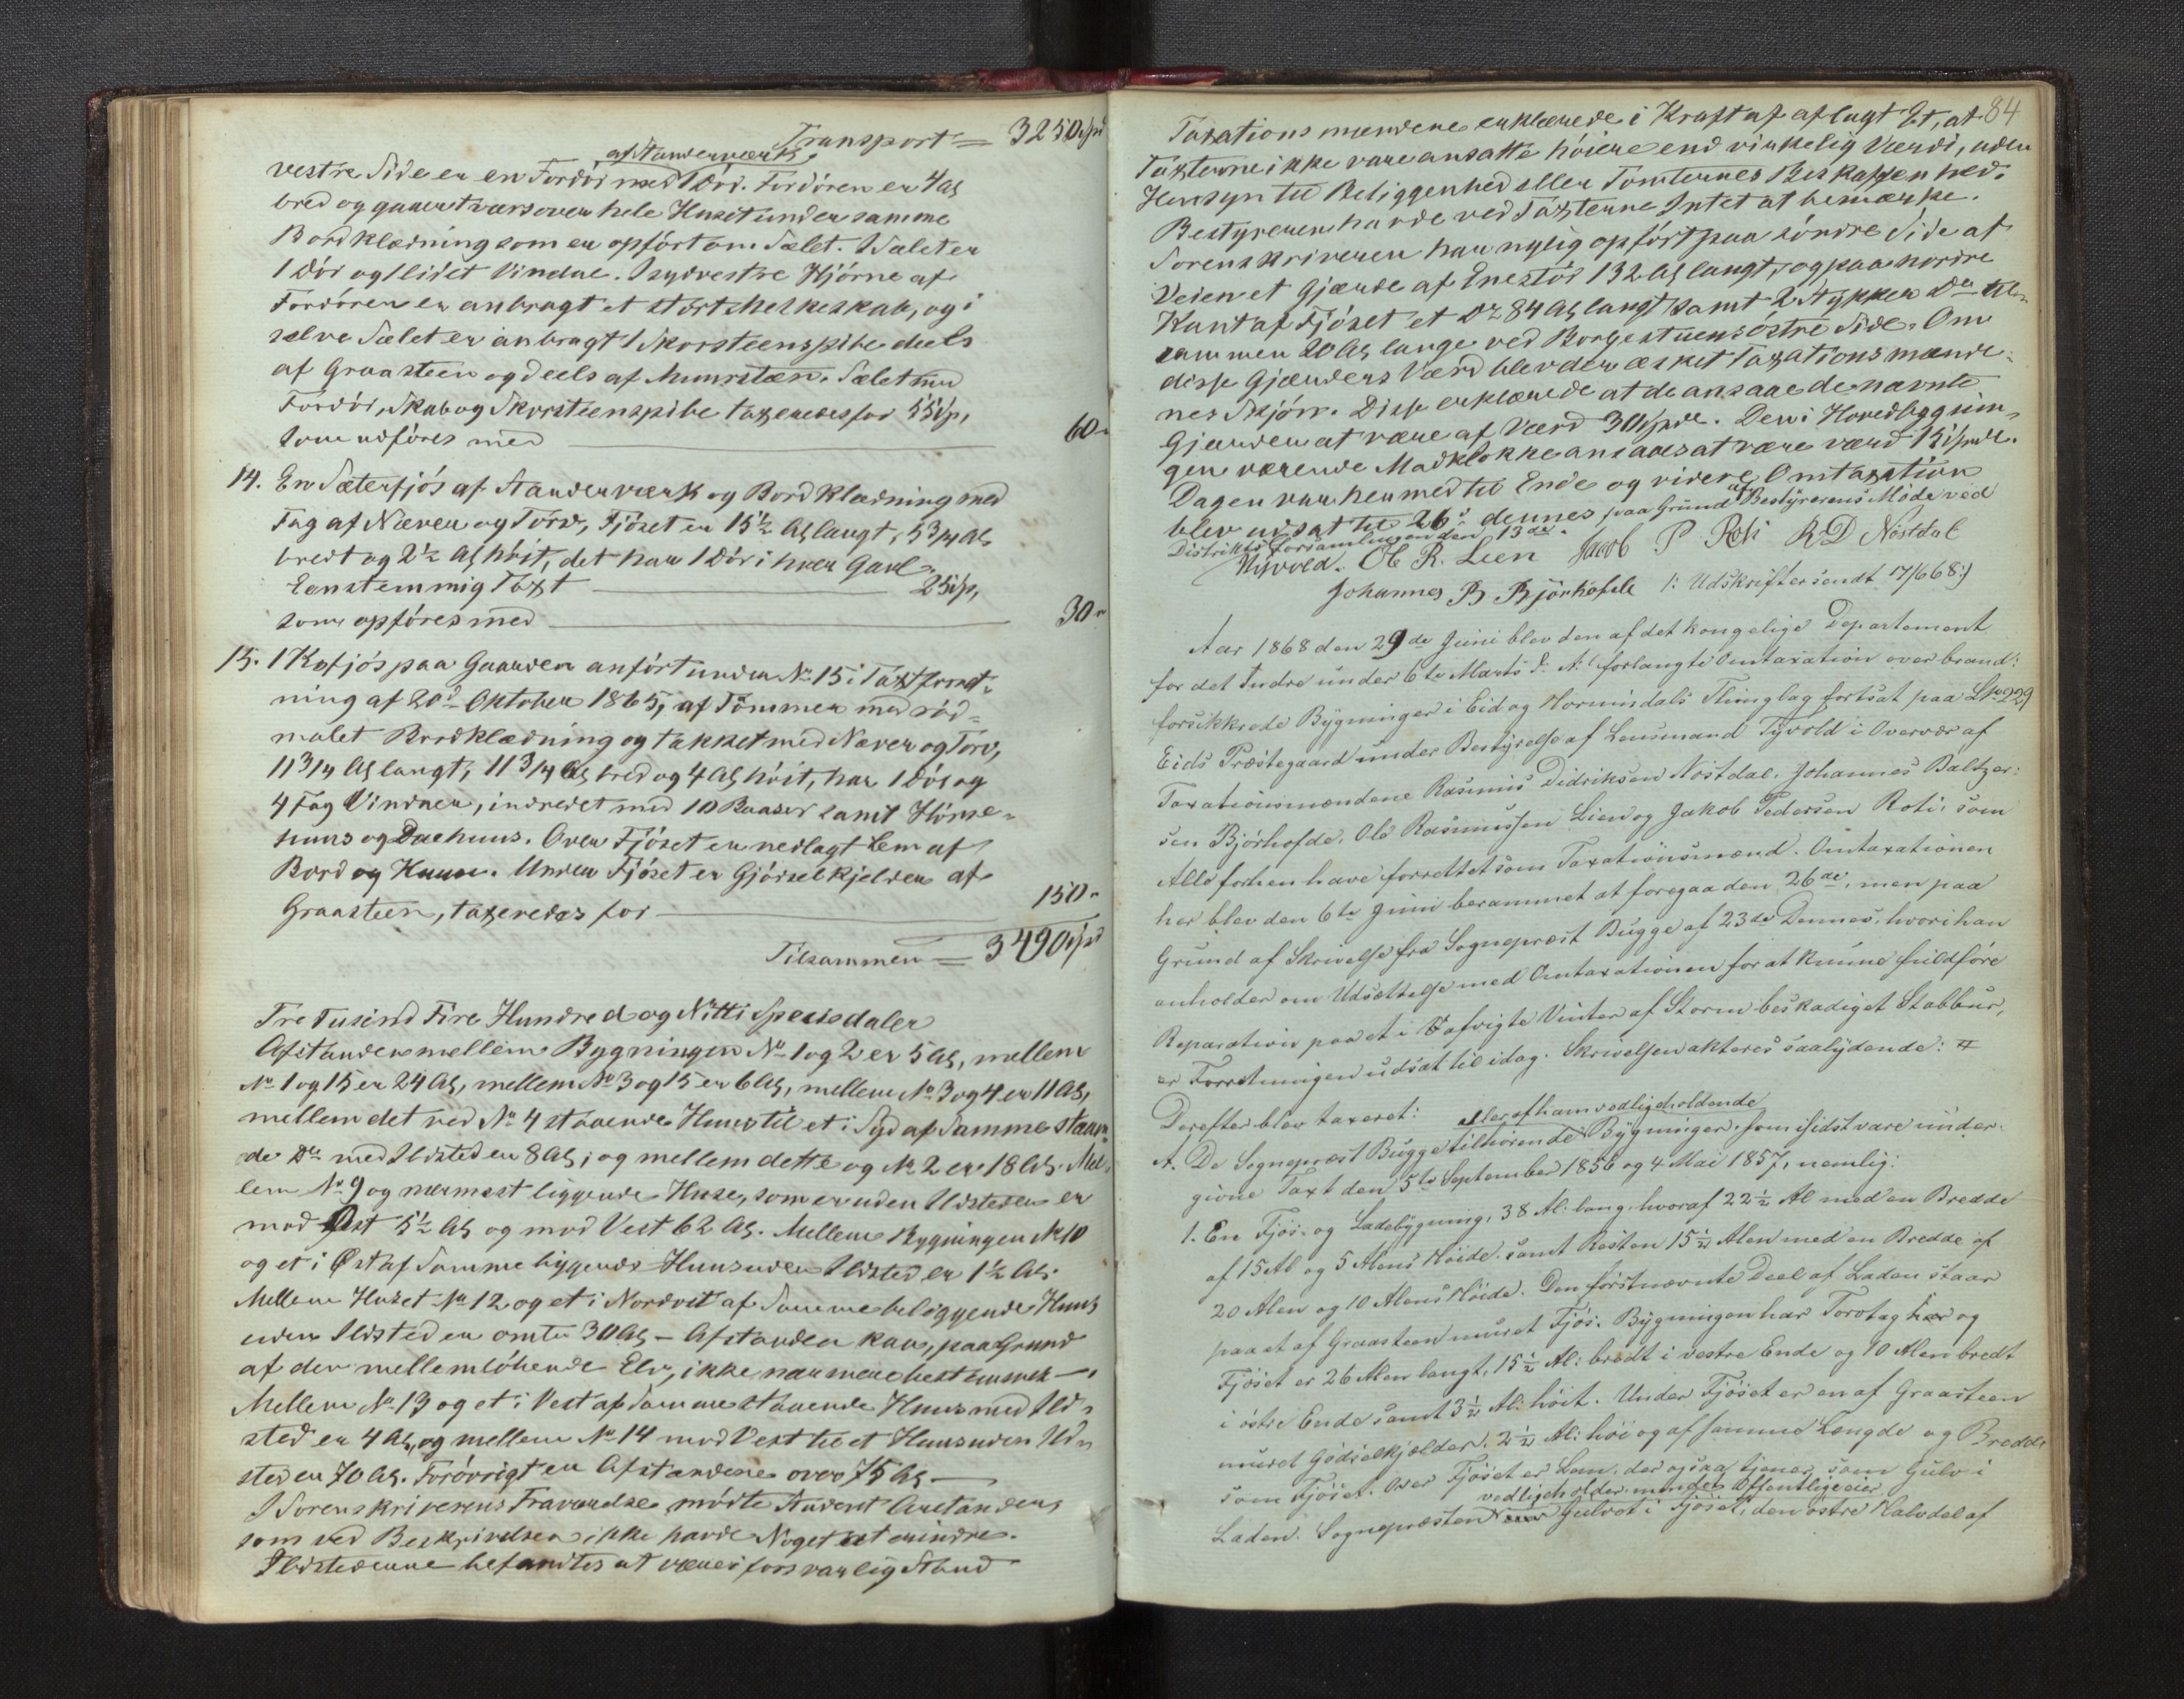 Transport = 3250 Spd
af Standerværk
vestre Side er en Fordör med 1 Dör. Fordören er 4 Al
bred og gaaer tværs over hele Huset under samme
Bordklædning som er opfört om Sælet. I Sælet er
1 Dör og 1 lidet Vindue. I sydvestre Hjörne af
Fordören er anbragt et stort Melkeskab, og i
selve Sælet er anbragt 1 Skorsteenspibe deels
af Graasteen og deels af Muursteen. Sælet med
Fordör, Skab og Skorsteenspibe taxeredes for 55 Sp,
som udföres med 60 "
14. En Sæterfjös af Standerværk og Bordklædning med
Tag af Næver og Törv, Fjöset er 15 1/2 Al langt, 5 3/4 Al
bredt og 2 1/2 Al höit, det har 1 Dör i hver Gavl
Eenstemmig Taxt 25 Sp,
som opföres med 30 "
15. 1 Kofjös paa Gaarden anfört under No 15 i Taxtforret-
ning af 20de Oktober 1865, af Tömmer med röd-
malet Bordklædning og takket med Næver og Törv,
11 3/4 Al langt, 11 3/4 Al bred og 4 Al höit, har 1 Dör og
4 Fag Vinduer, indredet med 10 Baaser samt
huus og Over Fjöset er nedlagt Lem af
Bord og Under Fjöset er Gjödselkjelder af
Graasteen, taxeredes for 150 "
Tilsammen = 3490 Spd
Tre Tusind Fire Hundred og Nitti Speciedaler
Afstanden mellem Bygningen No 1 og 2 er 5 Al, mellem
No 1 og 15 er 24 Al, mellem No 3 og 15 er 6 Al, mellem No 3 og 4 er 11 Al,
mellem det ved No 4 staaende Huus til et i Syd af Samme staaen-
de Do med Ildsted er 8 Al, og mellem dette og No 2 er 18 Al. Mel-
lem No 9 og nærmest liggende Huse, som er uden Ildsteder er
mod Øst 5 1/2 Al og mod Vest 62 Al. Mellem Bygningen No 10
og et i Øst af Samme liggende Huus uden Ildsted er 1 1/2 Al.
Mellem Huset No 12 og et i Nordvest af Samme beliggende Huus
uden Ildsted er omtr 30 Al – Afstanden kan, paa Grund
af den mellemlöbende Elv, ikke nærmere bestemmes –.
Mellem No 13 og et i Vest af Samme staaende Huus med Ild-
sted er 4 Al, og mellem No 14 mod Vest til et Huus uden Ild-
sted er 70 Al. Forövrigt er Afstandene over 75 Al –
I Sorenskriverens Fraværelse mödte Student
som ved Beskrivelsen ikke havde Noget at erindre.
Ildstederne befandtes at være i forsvarlig Stand
84
Taxationsmændene erklærede i Kraft af aflagt Ed, at
Taxterne ikke vare ansatte höiere end virkelig Værdi, uden
Hensyn til Beliggenhed eller Tomternes Beskaffenhed.
Bestyreren havde ved Taxterne Intet at bemærke.
Sorenskriveren har nylig opfört paa söndre Side af
Veien et Gjærde af Enestör 132 Al langt, og paa nordre
Kant af Fjöset et Do 84 Al langt samt 2 Stykker Do til-
sammen 20 Al lange ved Borgestuens östre Side. Om
disse Gjærders Værd blev der æsket Taxationsmænde-
nes Skjön. Disse erklærede at de ansaae de nævnte
Gjærder at være af Værd 30 Spdr. Den i Hovedbygnin-
gen værende Madklokke ansaaes at være værd 15 Spdr.
Dagen var hermed til Ende og videre Omtaxation
blev udsat til 26de dennes paa Grund af Bestyrerens Möde ved
Distrikts Forsamlingen den 13de.
Tyvold. Ole R. Lien Jacob P Roti R D Nöstdal
Johannes B Björhofde /: Udskrifter sendt 17/6 68 :/
Aar 1868 den 29de Juni blev den af det kongelige Departement
for det Indre under 6te Marts d. A. forlangte Omtaxation over brand-
forsikkrede Bygninger i Eid og Hornindals Thinglag fortsat paa L No 229
Eids Præstegaard under Bestyrelse af Lensmand Tyvold i Overvær af
Taxationsmændene Rasmus Didriksen Nöstdal, Johannes Baltzer-
sen Björhofde, Ole Rasmussen Lien og Jakob Pedersen Roti, som
Alle forhen have forrettet som Taxationsmænd. Omtaxationen
her blev den 6te Juni berammet at foregaa den 26de, men paa
Grund af Skrivelse fra Sognepræst Bugge af 23de Dennes, hvori han
anholder om Udsættelse med Omtaxationen for at kunne fuldföre
Reparation paa et i afvigte Vinter af Storm beskadiget Stabbur,
er Forretningen udsat til idag. Skrivelsen akteres saalydende: #
Derefter blev taxeret:
eller af ham vedligeholdende
A. De Sognepræst Bugge tilhörende Bygninger, som sidst vare under-
givne Taxt den 5te September 1856 og 4 Mai 1857, nemlig:
1. En Fjös- og Ladebygning, 38 Al: lang, hvoraf 22 1/2 Al med en Bredde
af 15 Al og 5 Alens Höide, samt Resten 15 1/2 Alen med en Bredde af
20 Alen og 10 Alens Höide. Den förstnævnte Deel af Laden staar
paa et af Graasteen muret Fjös. Bygningen har Torvtag og
Fjöset er 26 Alen langt, 15 1/2 Al: bredt i vestre Ende og 10 Alen bredt
i östre Ende samt 3 1/2 Al: höit. Under Fjöset er en af Graasteen
muret Gödselkjelder, 2 1/2 Al: höi og af samme Længde og Bredde
som Fjöset. Over Fjöset er Lem, der ogsaa tjener som Gulv i
vedligeholder mindes Offentlige eier
Laden. Sognepræsten Gulvet i Fjöset, den östre Halvdel af